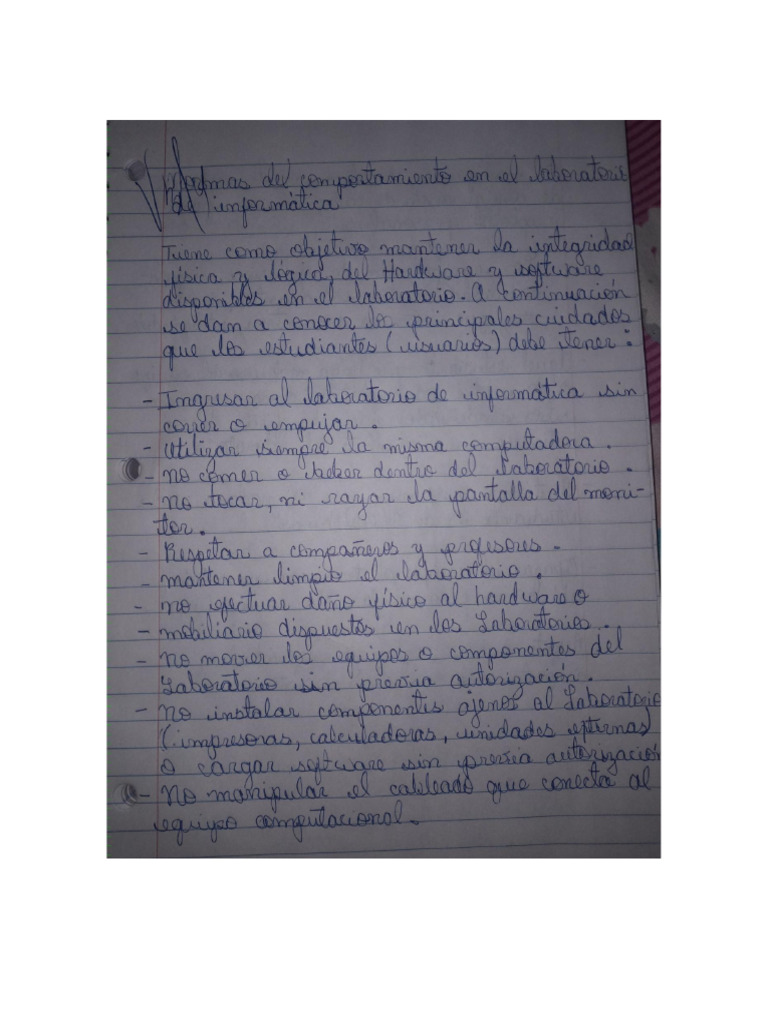 Normas del comportamiento en el laboratorio
de informática
Tiene como objetivo mantener la integridad
física y lógica, del Hardware y software
disponibles en el laboratorio. A continuación
se dan a conocer los principales cuidados
que los estudiantes (usuarios) debe tener:
- Ingresar al laboratorio de informática sin
correr o empujar.
- Utilizar siempre la misma computadora.
- no comer o beber dentro del laboratorio.
- No tocar, ni rayar la pantalla del moni-
tor.
- Respetar a compañeros y profesores.
- mantener limpio el laboratorio.
- no efectuar daño físico al hardware o
- mobiliario dispuestos en los Laboratorios.
- no mover los equipos o componentes del
Laboratorio sin previa autorización.
- No instalar componentes ajenos al Laboratorio
(impresoras, calculadoras, unidades externas)
o cargar software sin previa autorización
- No manipular el cableado que conecta al
equipo computacional.